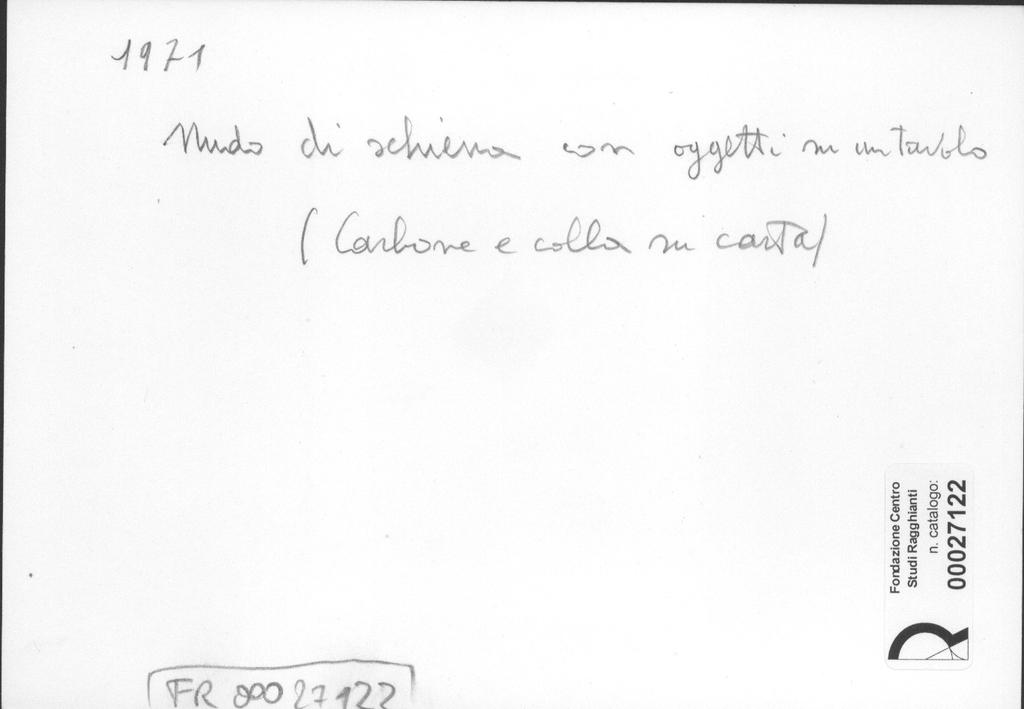 1971
Nudo di schiena con oggetti su un tavolo
(Carbone e colla su carta)
Fondazione Centro
Studi Ragghianti
n. catalogo:
00027122
FR 00027122